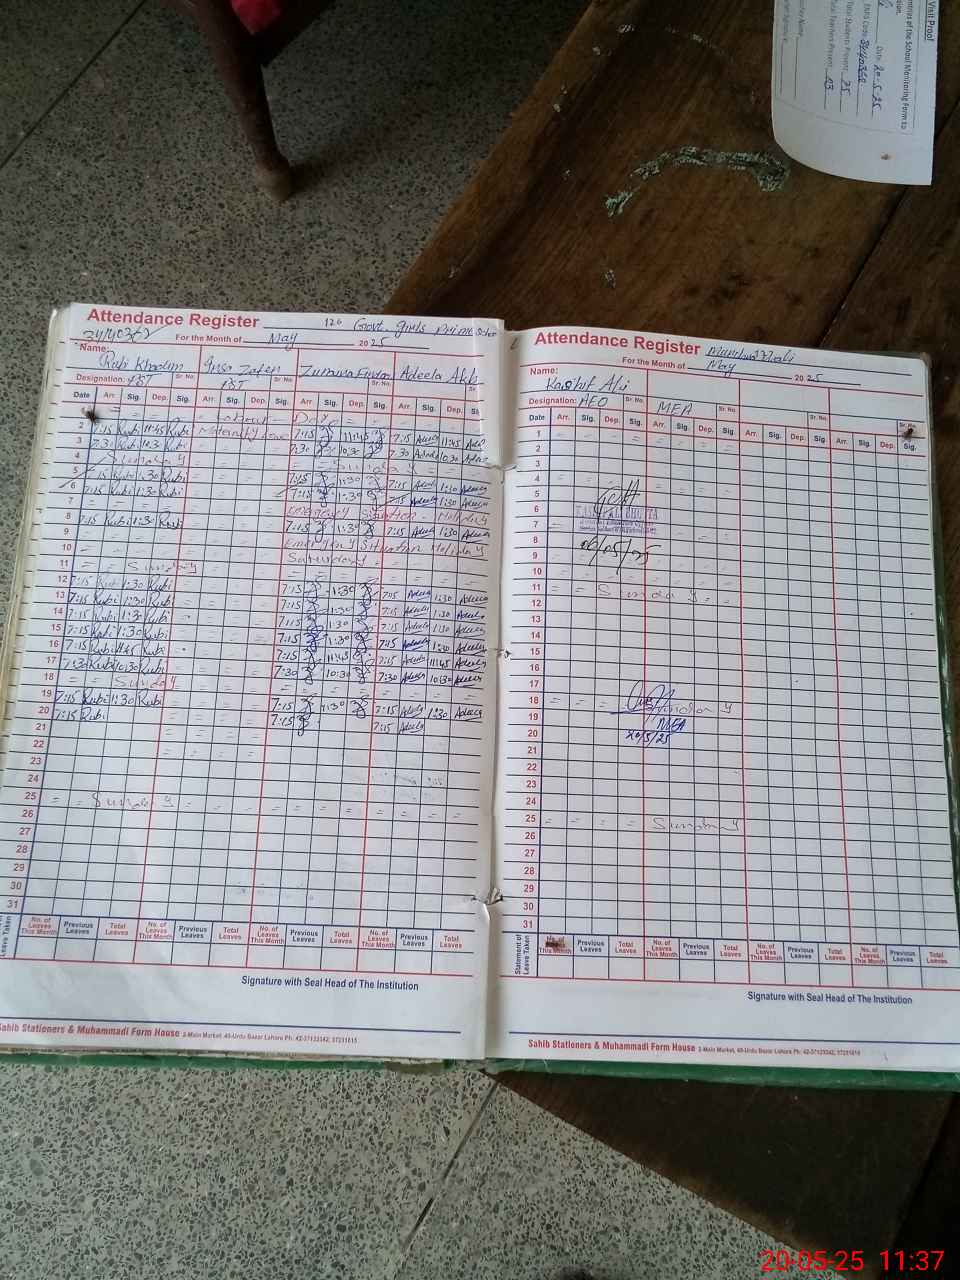 Visit Proof
of the School Monitoring Form to
Date: 20-5-25
EMIS Code: 34140362
Total Students Present: 75
Teachers Present: 03
Attendance Register 126 Govt. Girls Prim School
34140362 For the Month of May 2025
Name: Rubi Khanum Insa Zafer Adeela
Designation: PST Sr. No. PST Sr. No. Sr. No. Sr.
Date Arr. Sig. Dep. Sig. Arr. Sig. Dep. Sig. Arr. Sig. Dep. Sig. Arr. Sig. Dep. Sig.
Labour Day
2 7:15 Rubi 11:45 Rubi Maternity Leave 7:15 11:45 7:15 Adeela 11:45
3 7:30 Rubi 10:30 Rubi 7:30 10:30 7:30 Adeela 10:30
4 Sunday Sunday
5 7:15 Rubi 1:30 Rubi 7:15 1:30 7:15 Adeela 1:30 Adeela
6 7:15 Rubi 1:30 Rubi 7:15 1:30 7:15 Adeela 1:30 Adeela
7 Emergency Situation - Holiday
8 7:15 Rubi 1:30 Rubi 7:15 1:30 7:15 Adeela 1:30 Adeela
9 Emergency Situation Holiday
10 Saturday
11 Sunday
12 7:15 Rubi 1:30 Rubi 7:15 1:30 7:15 Adeela 1:30 Adeela
13 7:15 Rubi 1:30 Rubi 7:15 1:30 7:15 Adeela 1:30 Adeela
14 7:15 Rubi 1:30 Rubi 7:15 1:30 7:15 Adeela 1:30 Adeela
15 7:15 Rubi 1:30 Rubi 7:15 1:30 7:15 Adeela 1:30 Adeela
16 7:15 Rubi 11:45 Rubi 7:15 11:45 7:15 Adeela 11:45 Adeela
17 7:30 Rubi 10:30 Rubi 7:30 10:30 7:30 Adeela 10:30 Adeela
18 Sunday
19 7:15 Rubi 1:30 Rubi 7:15 1:30 7:15 Adeela 1:30 Adeela
20 7:15 Rubi 7:15 7:15 Adeela
21
22
23
24
25 Sunday
26
27
28
29
30
31
Leave Taken No. of Leaves This Month Previous Leaves Total Leaves No. of Leaves This Month Previous Leaves Total Leaves No. of Leaves This Month Previous Leaves Total Leaves No. of Leaves This Month Previous Leaves Total Leaves
Signature with Seal Head of The Institution
Sahib Stationers & Muhammadi Form House 2-Main Market, 40-Urdu Bazar Lahore Ph: 42-37123342, 37231815
Attendance Register
For the Month of May 2025
Name: Kashif Ali
Designation: AEO Sr. No. MEA Sr. No. Sr. No. Sr. No.
Date Arr. Sig. Dep. Sig. Arr. Sig. Dep. Sig. Arr. Sig. Dep. Sig. Arr. Sig. Dep. Sig.
1
2
3
4
5
6
7
8 06/05/25
9
10
11 Sunday
12
13
14
15
16
17
18 Sunday
19 MEA
20 20/5/25
21
22
23
24
25 Sunday
26
27
28
29
30
31
Statement of Leave Taken No. of Leaves This Month Previous Leaves Total Leaves No. of Leaves This Month Previous Leaves Total Leaves No. of Leaves This Month Previous Leaves Total Leaves No. of Leaves This Month Previous Leaves Total Leaves
Signature with Seal Head of The Institution
Sahib Stationers & Muhammadi Form House 2-Main Market, 40-Urdu Bazar Lahore Ph: 42-37123342, 37231815
20-05-25 11:37